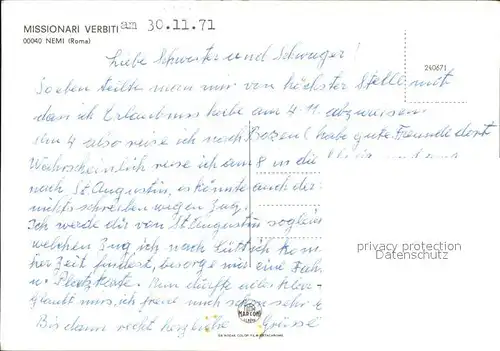 MISSIONARI VERBITI am 30.11.71
00040 NEMI (Roma)
Liebe Schwester und Schwager!
240671
Soeben teilte man mir von höchster Stelle mit
dass ich Erlaubnis habe am 4.
Am 4 also reise ich nach Bozen (habe gute Freunde dort
Wahrscheinlich reise ich am 8 in die
nach St. Augustin, es könnte auch die
nichts schreiben wegen Zug.
Ich werde dir von St. Augustin sogleich
welchen Zug ich nach Lüttich
her Zeit findest, besorge mir eine
u. Platzkarte. Nun dürfte alles klar
glaubt mir, ich freue mich schon sehr
Bis dann recht herzliche Grüsse
privacy protection
Datenschutz
MARCONI